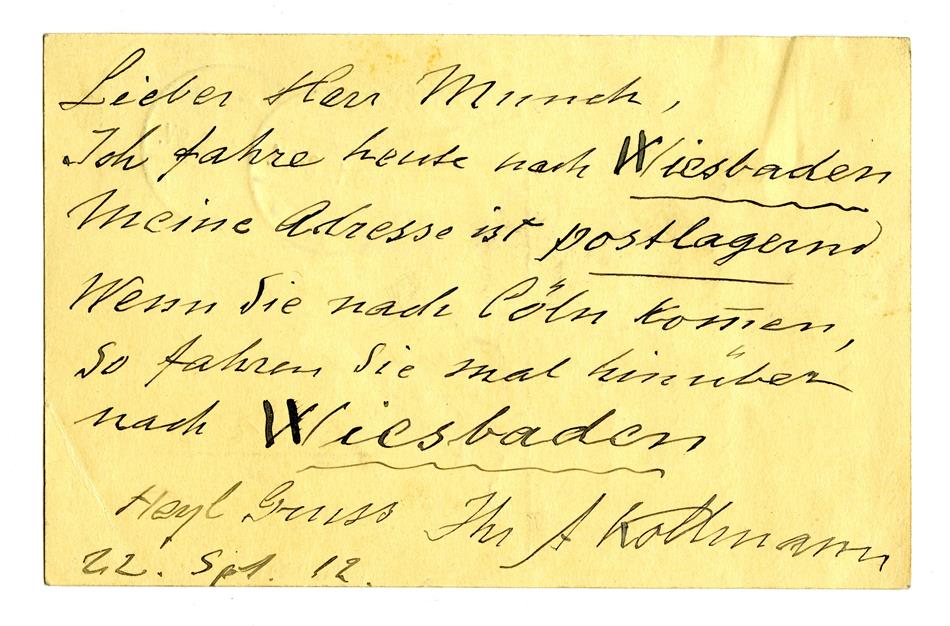 Lieber Herr Munch,
Ich fahre heute nach Wiesbaden
Meine Adresse ist postlagernd
Wenn Sie nach Cöln kom̄en,
So fahren Sie mal hinüber
nach Wiesbaden
Heyl Gruss Ihr A Kollmann
22. Spt. 12.